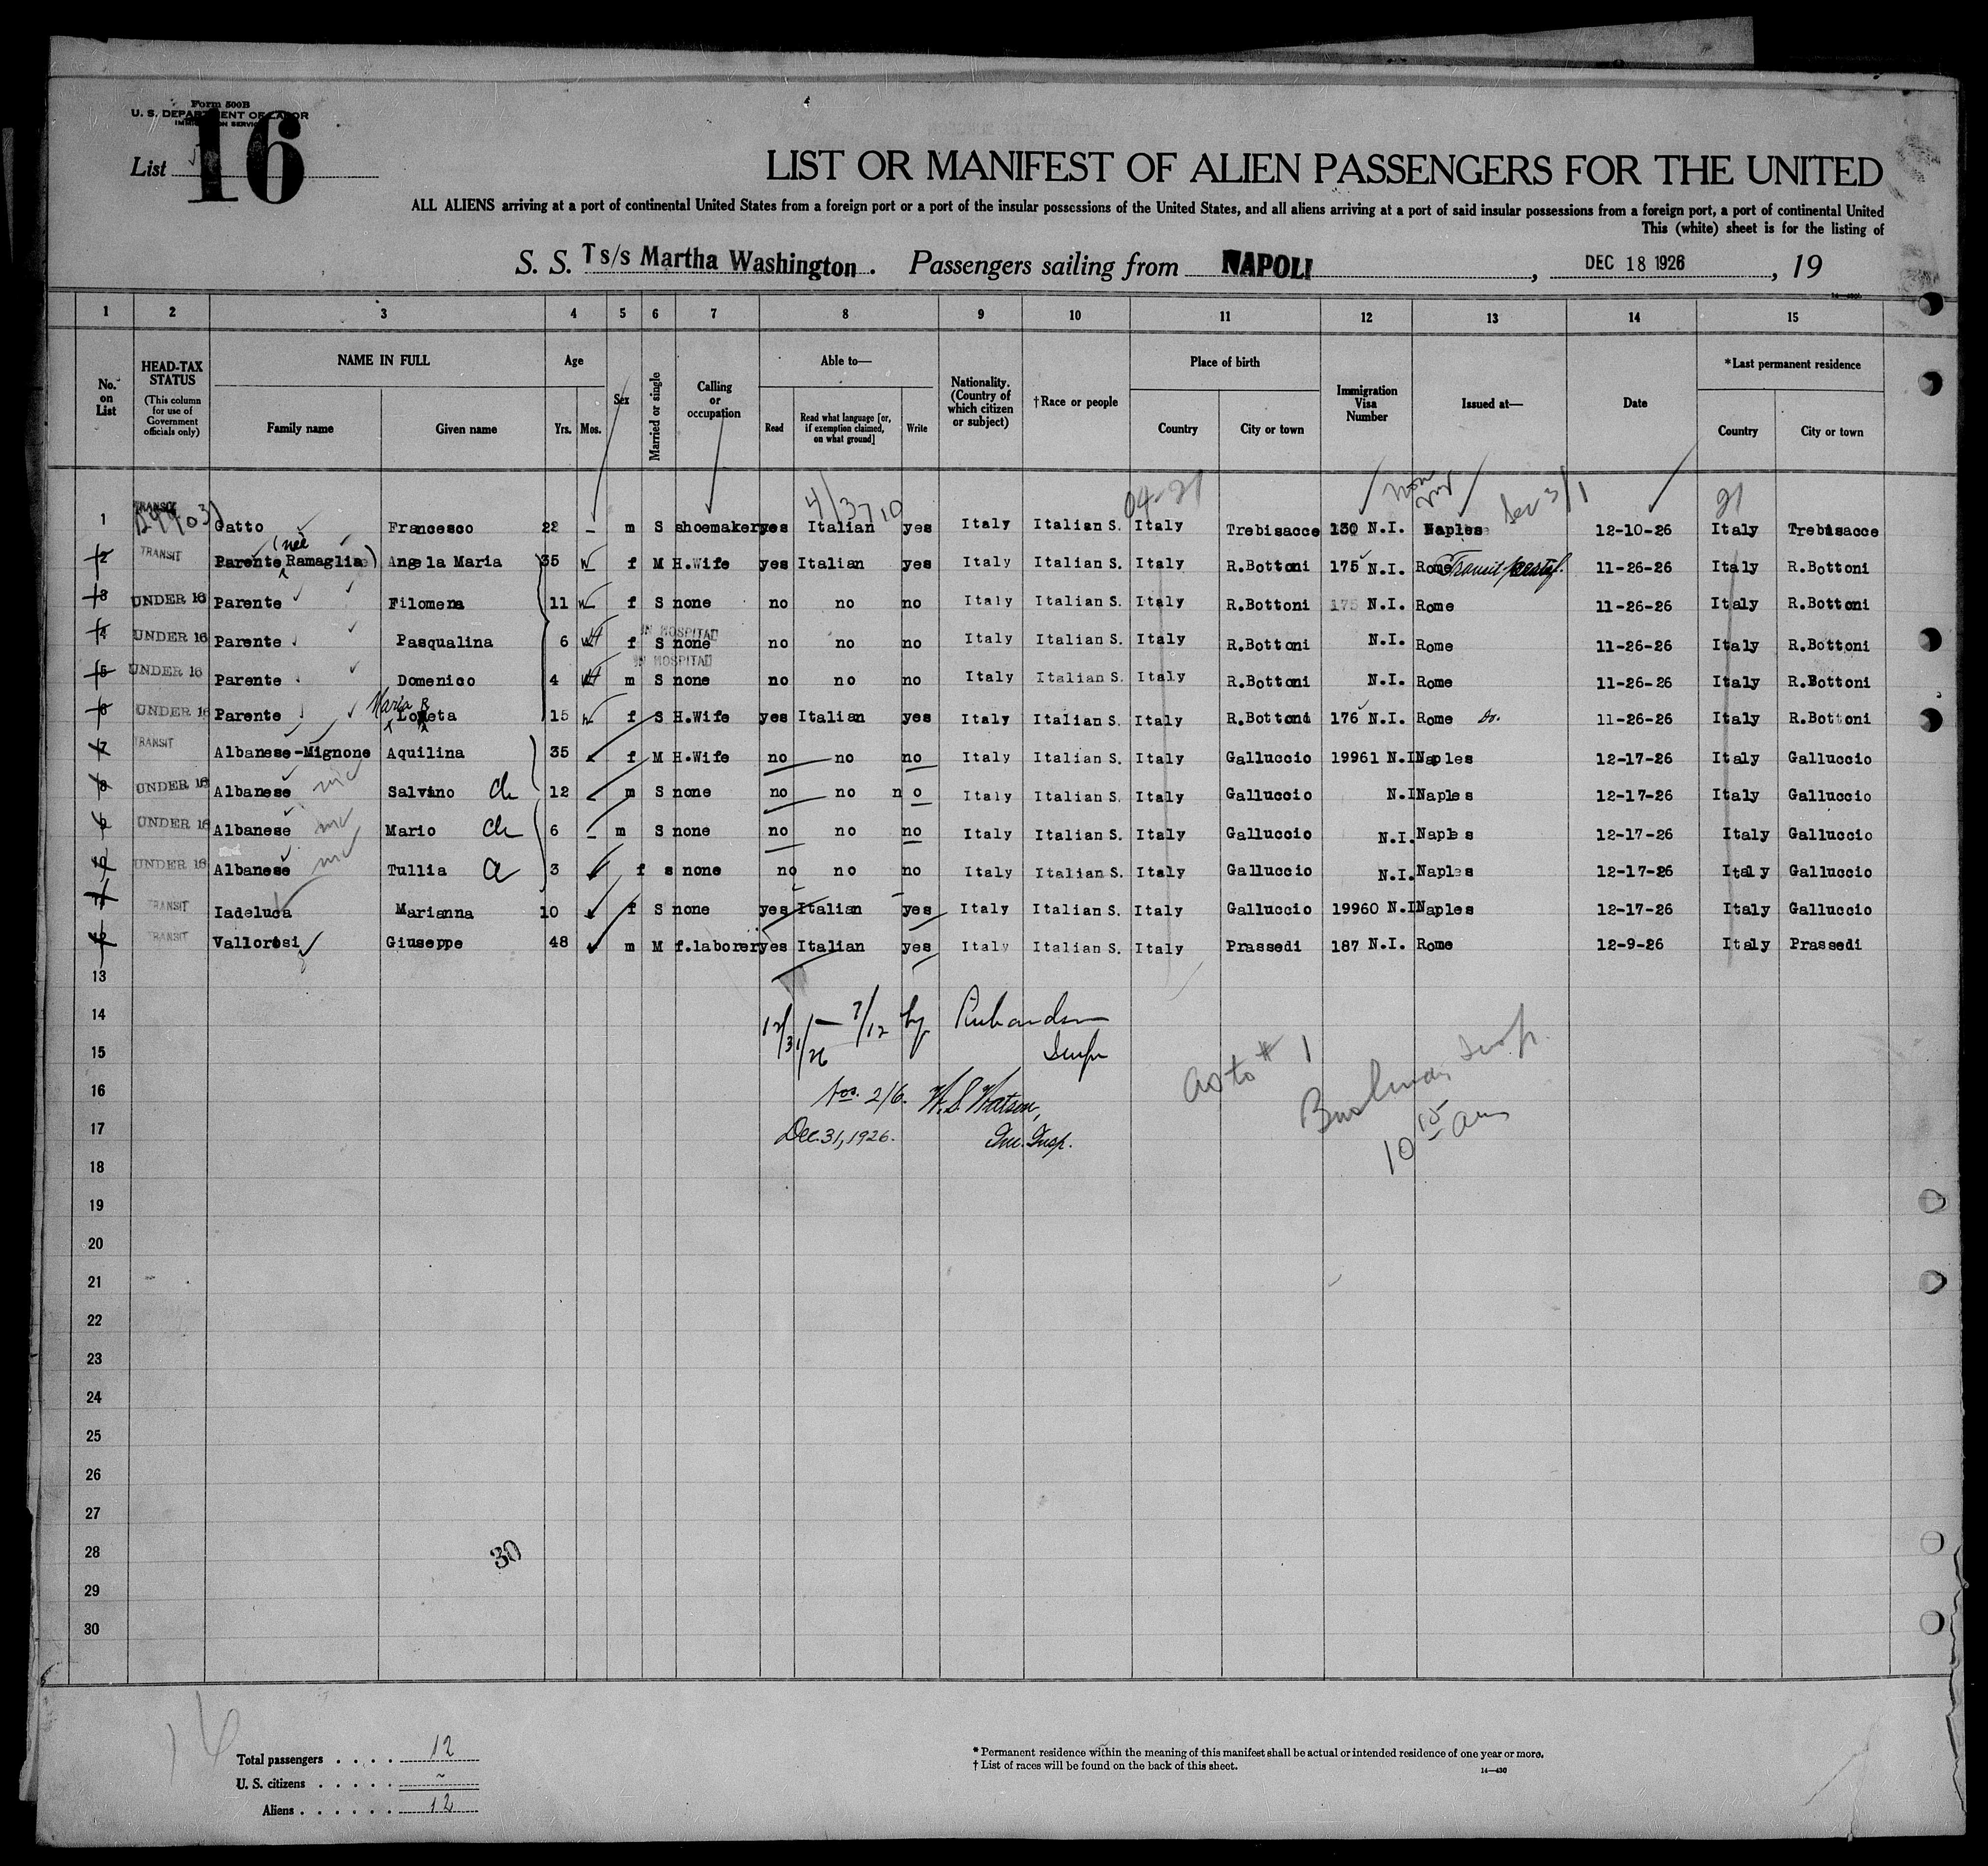 Form 500B
U. S. DEPARTMENT OF LABOR
IMMIGRATION SERVICE
List 16
LIST OR MANIFEST OF ALIEN PASSENGERS FOR THE UNITED
ALL ALIENS arriving at a port of continental United States from a foreign port or a port of the insular possessions of the United States, and all aliens arriving at a port of said insular possessions from a foreign port, a port of continental United
This (white) sheet is for the listing of
S. S. Ts/s Martha Washington. Passengers sailing from NAPOLI, DEC 18 1926, 19
1 2 3 4 5 6 7 8 9 10 11 12 13 14 15
No. on List
HEAD-TAX STATUS (This column for use of Government officials only)
NAME IN FULL
Family name Given name
Age
Yrs. Mos.
Sex
Married or single
Calling or occupation
Able to—
Read Read what language [or, if exemption claimed, on what ground] Write
Nationality. (Country of which citizen or subject)
†Race or people
Place of birth
Country City or town
Immigration Visa Number
Issued at—
Date
*Last permanent residence
Country City or town
4/3710 04-21 21
1 TRANSIT Gatto Francesco 22 – m S shoemaker yes Italian yes Italy Italian S. Italy Trebisacce 130 N.I. Naples 12-10-26 Italy Trebisacce
2 TRANSIT Parente (neé Ramaglia) Angela Maria 35 f M H.Wife yes Italian yes Italy Italian S. Italy R.Bottoni 175 N.I. Rome Transit 11-26-26 Italy R.Bottoni
3 UNDER 16 Parente Filomena 11 f S none no no no Italy Italian S. Italy R.Bottoni 175 N.I. Rome 11-26-26 Italy R.Bottoni
IN HOSPITAL
4 UNDER 16 Parente Pasqualina 6 f S none no no no Italy Italian S. Italy R.Bottoni N.I. Rome 11-26-26 Italy R.Bottoni
IN HOSPITAL
5 UNDER 16 Parente Domenico 4 m S none no no no Italy Italian S. Italy R.Bottoni N.I. Rome 11-26-26 Italy R.Bottoni
6 UNDER 16 Parente Maria Loreta 15 f S H.Wife yes Italian yes Italy Italian S. Italy R.Bottoni 176 N.I. Rome do. 11-26-26 Italy R.Bottoni
7 TRANSIT Albanese-Mignone Aquilina 35 f M H.Wife no no no Italy Italian S. Italy Galluccio 19961 N.I Naples 12-17-26 Italy Galluccio
8 UNDER 16 Albanese Salvino Ch 12 m S none no no no Italy Italian S. Italy Galluccio N.I Naples 12-17-26 Italy Galluccio
9 UNDER 16 Albanese Mario Ch 6 – m S none no no no Italy Italian S. Italy Galluccio N.I. Naples 12-17-26 Italy Galluccio
10 UNDER 16 Albanese Tullia 3 f s none no no no Italy Italian S. Italy Galluccio N.I. Naples 12-17-26 Italy Galluccio
11 TRANSIT Iadeluca Marianna 10 f S none yes Italian yes Italy Italian S. Italy Galluccio 19960 N.I Naples 12-17-26 Italy Galluccio
12 TRANSIT Vallorosi Giuseppe 48 m M f.laborer yes Italian yes Italy Italian S. Italy Prassedi 187 N.I. Rome 12-9-26 Italy Prassedi
13
14
12/31/26 – 7/12 by Richardson
15
Insp
as to # 1
16
Nos. 2/6. W.S. Watson,
17
Dec. 31, 1926. Imm. Insp.
Insp.
10 15 am
18
19
20
21
22
23
24
25
26
27
28
30
29
30
16
Total passengers . . . . 12
U. S. citizens . . . . . ~
Aliens . . . . . . 12
* Permanent residence within the meaning of this manifest shall be actual or intended residence of one year or more.
† List of races will be found on the back of this sheet.
14—430